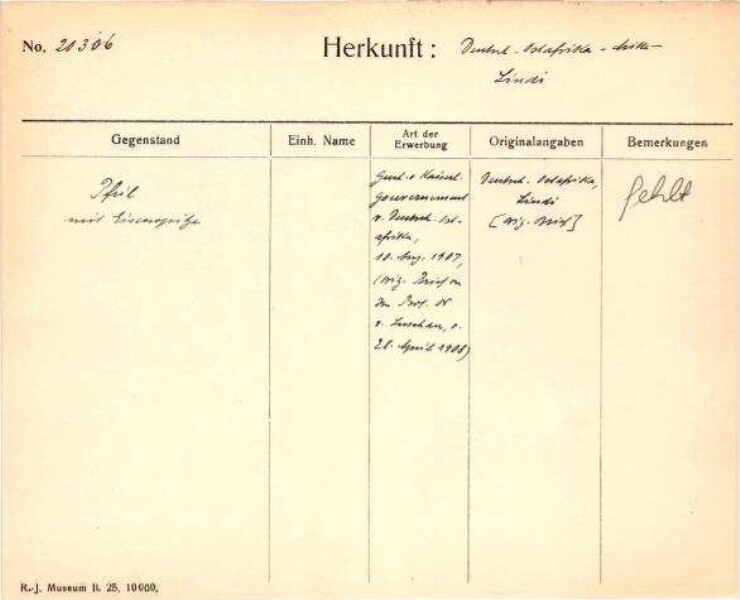 No. 20306
Herkunft: Deutsch-Ostafrika -
Lindi
Gegenstand
Einh. Name
Art der
Erwerbung
Originalangaben
Bemerkungen
Pfeil
mit Eisenspitze
Gesch. v. Kaiserl.
Gouvernement
v. Deutsch-Ost-
afrika,
10. Aug. 1907,
(orig. Brief von
Prof. Dr
v. Luschan, v.
28. April 1908)
Deutsch. Ostafrika,
Lindi
[orig. Brief]
Fehlt
R.-J. Museum II. 25, 10000,